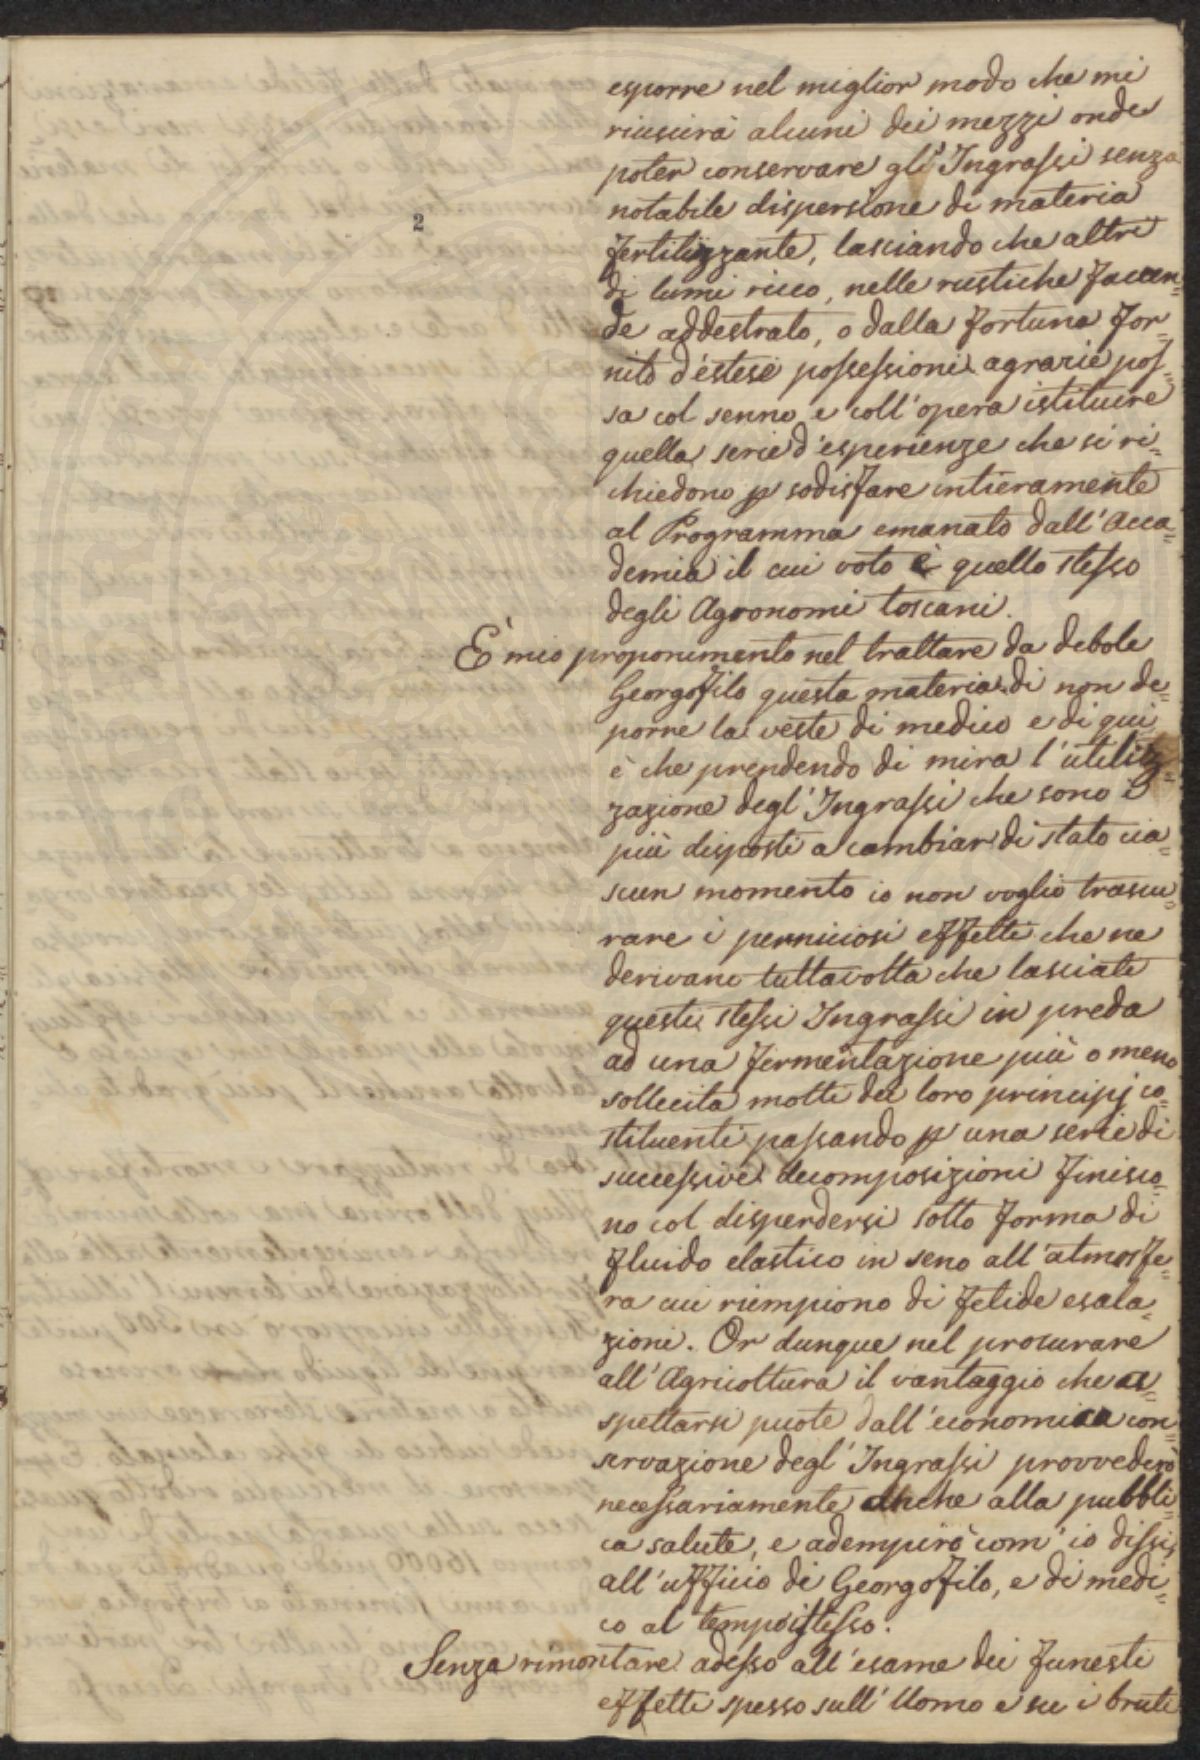 2
esporre nel miglior modo che mi
riuscirà alcuni dei mezzi onde
poter conservare gli Ingraſsi senza
notabile dispersione di materia
fertilizzante, lasciando che altri
di lumi ricco, nelle rustiche faccen=
de addestrato, o dalla fortuna for=
nito d'estese poſseſsioni agrarie poſ=
sa col senno e coll'opera istituire
quella serie d'esperienze che si ri=
chiedono p sodisfare intieramente
al Programma emanato dall'Acca=
demia il cui voto è quello steſso
degli Agronomi toscani.
È mio proponimento nel trattare da debole
Georgofilo questa materia di non de=
porre la veste di medico e di qui
è che prendendo di mira l'utiliz=
zazione degl'Ingraſsi che sono i
più disposti a cambiar di stato cia=
scun momento io non voglio trascu=
rare i perniciosi effetti che ne
derivano tuttavolta che lasciati
questi steſsi Ingraſsi in preda
ad una fermentazione più o meno
sollecita molti dei loro principj co=
stituenti paſsando p una serie di
succeſsive decomposizioni finisco=
no col disperdersi sotto forma di
fluido elastico in seno all'atmosfe=
ra cui riempiono di fetide esala=
zioni. Or dunque nel procurare
all'Agricoltura il vantaggio che a=
spettarsi puote dall'economica con=
servazione degl'Ingraſsi provvederò
neceſsariamente anche alla pubbli=
ca salute, e adempirò com'io diſsi,
all'ufficio di Georgofilo, e di medi=
co al tempo isteſso.
Senza rimontare adeſso all'esame dei funesti
effetti spesso sull'Uomo e su i bruti